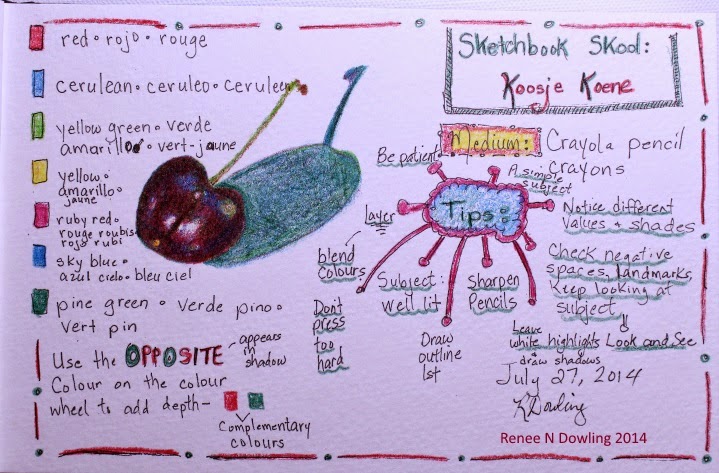 red • rojo • rouge
cerulean • ceruleo • ceruleen
yellow green • verde
amarillo • vert-jaune
yellow •
amarillo •
jaune
ruby red •
rouge roubis
rojo rubi
sky blue •
azul cielo • bleu ciel
pine green • verde pino •
vert pin
Use the OPPOSITE
appears
in
shadow
Colour on the colour
wheel to add depth-
Complementary
colours
Sketchbook Skool:
Koosje Koene
Medium: Crayola pencil
crayons
Tips:
Be patient
A simple
subject
Notice different
values + shades
Check negative
spaces, landmarks
Keep looking at
subject
Look and See
Leave
white highlights
draw shadows
Sharpen
Pencils
Draw
outline
1st
Subject:
well lit
Don't
press
too
hard
blend
colours
layer
July 27, 2014
RDowling
Renee N Dowling 2014